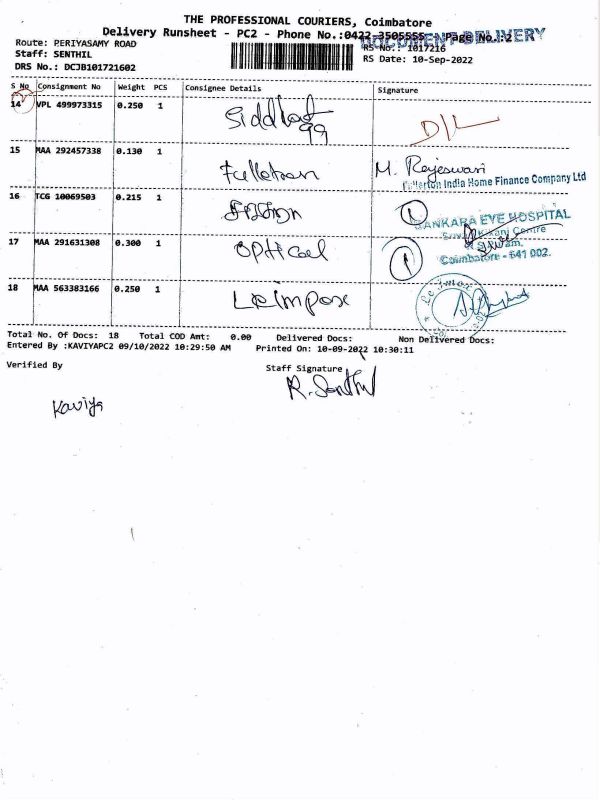 THE PROFESSIONAL COURIERS, Coimbatore
Delivery Runsheet - PC2 - Phone No.:0422-3505555 Page No.:2
DOCUMENT DELIVERY
Route: PERIYASAMY ROAD
RS No.: 1017216
Staff: SENTHIL
RS Date: 10-Sep-2022
DRS No.: DCJB101721602
S No Consignment No Weight PCS Consignee Details Signature
14 VPL 499973315 0.250 1 Siddhat
99 D/L
15 MAA 292457338 0.130 1 Fulletron M. Rajeswari
Fullerton India Home Finance Company Ltd
16 TCG 10069503 0.215 1 1
SANKARA EYE HOSPITAL
17 MAA 291631308 0.300 1 optical 1
Coimbatore - 641 002.
18 MAA 563383166 0.250 1 Le impose
Total No. Of Docs: 18 Total COD Amt: 0.00 Delivered Docs: Non Delivered Docs:
Entered By :KAVIYAPC2 09/10/2022 10:29:50 AM Printed On: 10-09-2022 10:30:11
Verified By Staff Signature
Kaviya R. Senthil